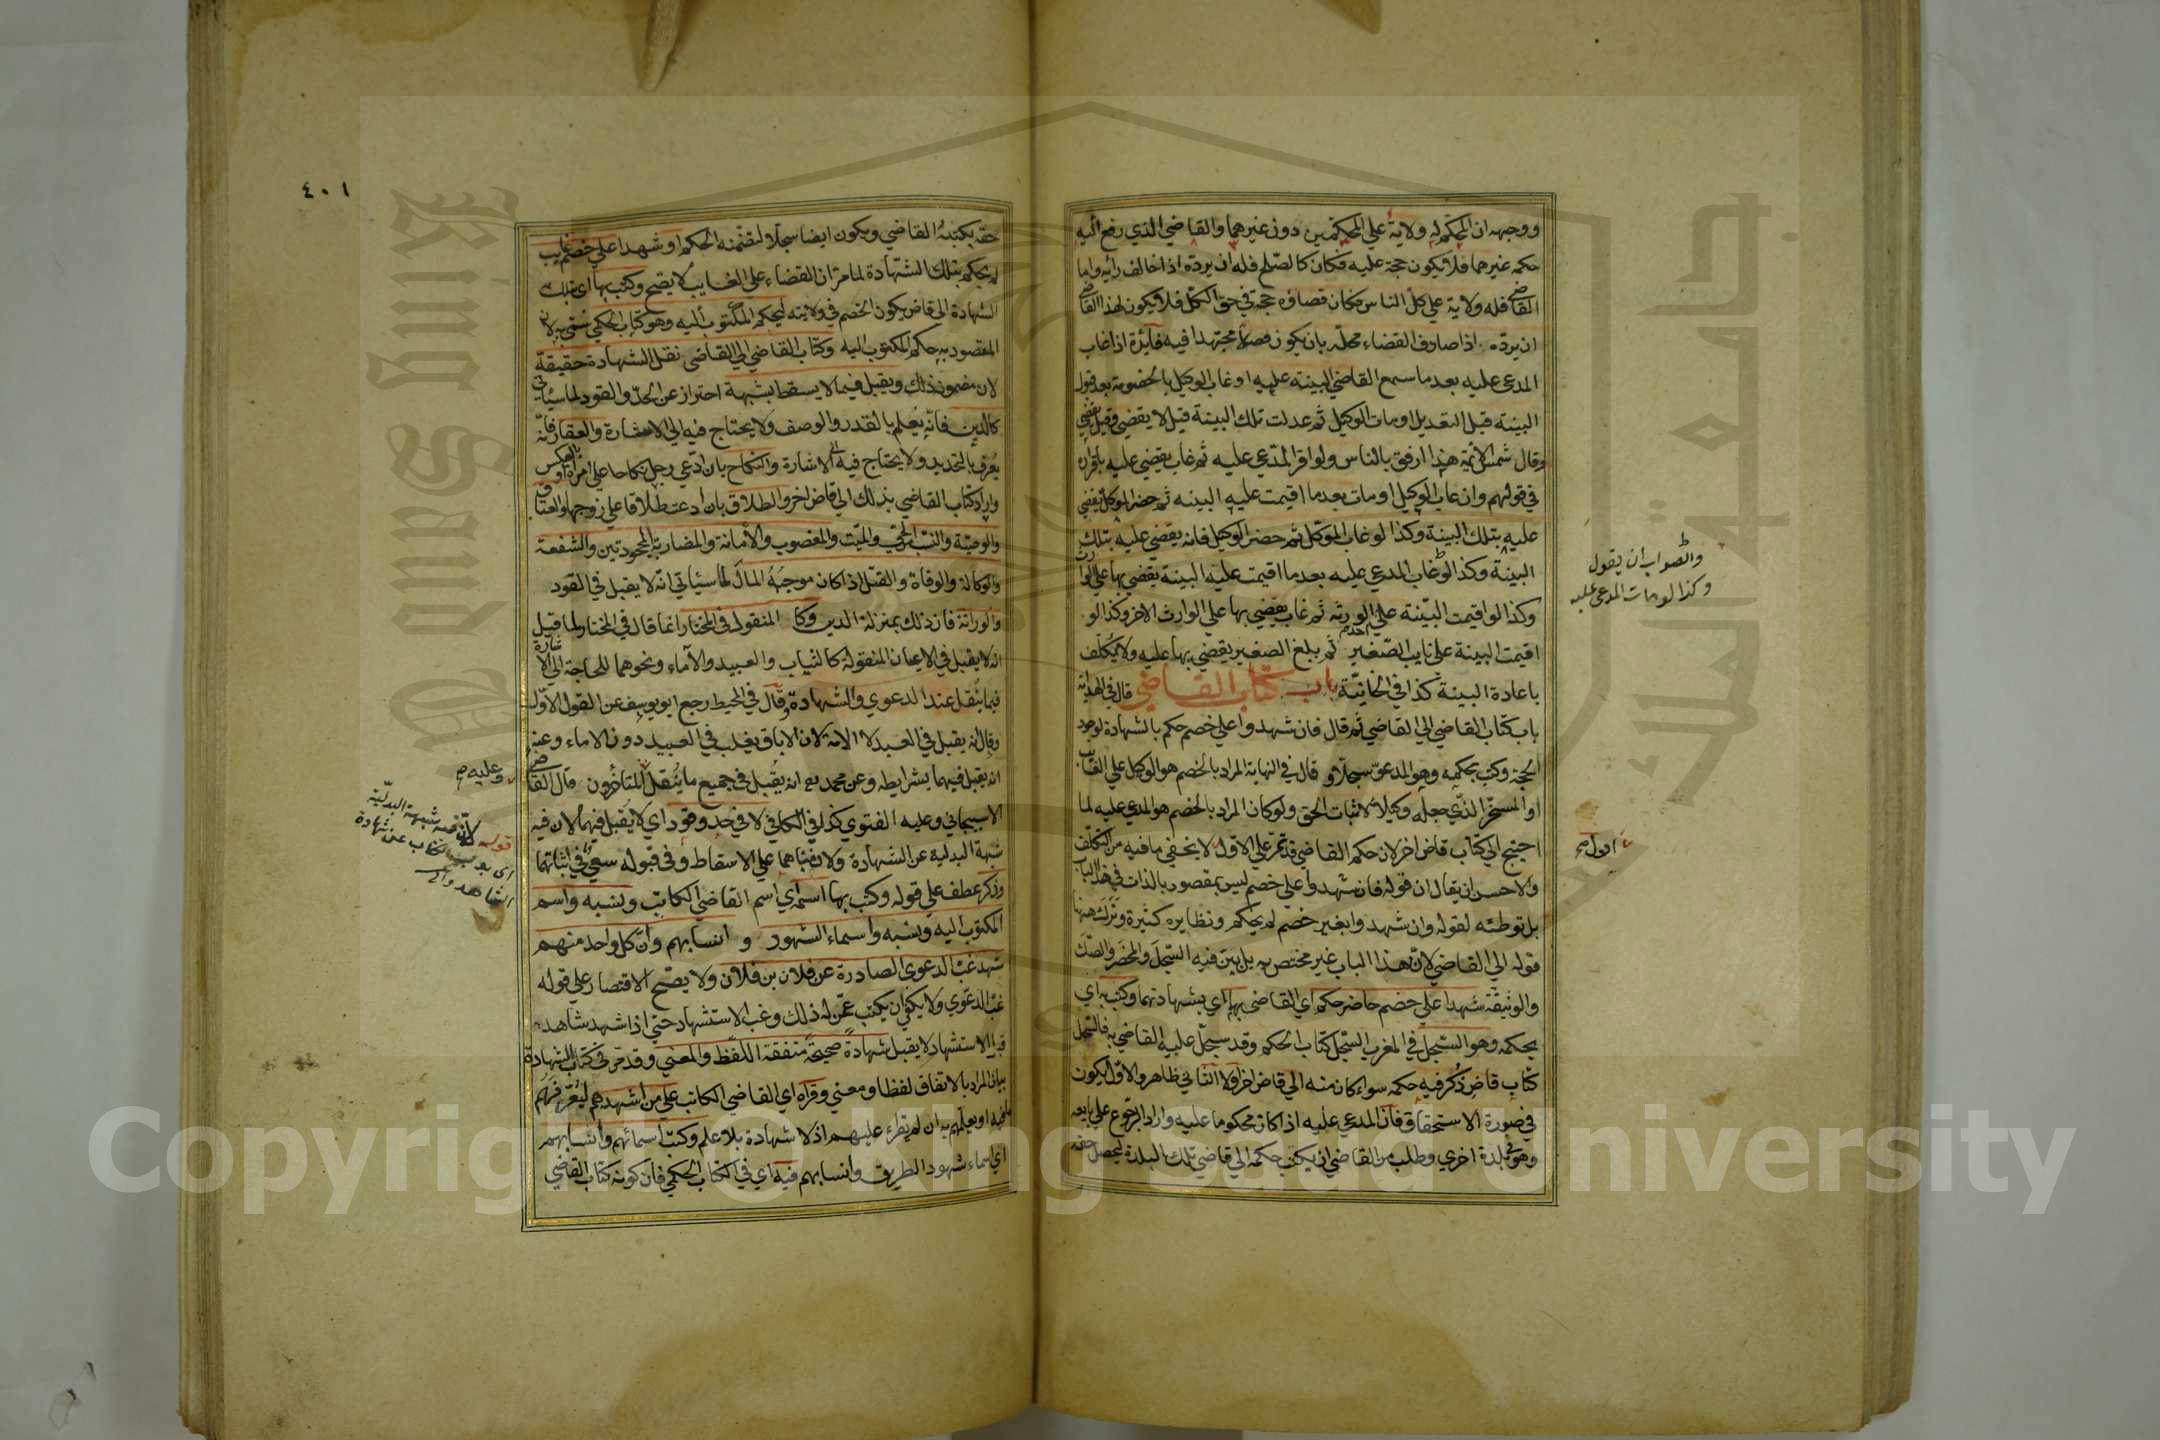 ووجهه ان للمحكم له ولاية علي المحكمين دون غيرهما والقاضي الذي رفع اليه
حكمه غيرهما فلا يكون حجة عليه فكان كالصلح فله ان يرده اذا خالف رأيه واما
القاضي فله ولاية علي كل الناس فكان قضاؤه حجة في حق الكل فلا يكون لهذا القاضي
ان يرده اذا صادف القضاء محله بان يكون فصلا مجتهدا فيه فائزة اذا غاب
المدعي عليه بعد ما سمع القاضي البينة عليه او غاب الوكيل بالخصومة بعد قبول
البينة قبل التعديل او مات الوكيل ثم عدلت تلك البينة قيل لا يقضي وقيل يقضي
وقال شمس الائمة هذا ارفق بالناس ولو اقر المدعي عليه ثم غاب يقضي عليه باقراره
في قولهم وان غاب الوكيل او مات بعد ما اقيمت عليه البينه ثم حضر الموكل يقضي
عليه بتلك البينة وكذا لو غاب الموكل ثم حضر الوكيل فانه يقضي عليه بتلك
البينة وكذا لو غاب المدعي عليه بعد ما اقيمت عليه البينة يقضي بها علي الوارث
وكذا لو اقيمت البينة علي احد الورثه ثم غاب يقضي بها علي الوارث الاخر وكذا لو
اقيمت البينة علي نايب الصغير ثم بلغ الصغير يقضي بها عليه ولا يكلف
باعادة البينة كذا في الخانية باب كتاب القاضي قال في الهداية
باب كتاب القاضي الي القاضي ثم قال فان شهدوا علي خصم حكم بالشهادة لوجود
الحجة وكتب بحكمه وهو المدعو سجلا و قال في النهاية المراد بالخصم هو الوكيل علي الغايب
او المسخر الذي جعله وكيلا لاثبات الحق ولو كان المراد بالخصم هو المدعي عليه لما
احتيج الي كتاب قاض اخر لان حكم القاضي قد تم علي الاول لا يخفي ما فيه من التكلف
والاحسن ان يقال ان قوله فان شهدوا علي خصم ليس بمقصور بالذات في هذا الباب
بل توطئه لقوله وان شهدوا بغير خصم لم يحكم ونظايره كثيرة وترك ههنا
قوله الي القاضي لان هذا الباب غير مختص به بل بين فيه السجل والمحضر والصك
والوثيقة شهدا علي خصم حاضر حكم اي القاضي بها اي بشهادتهما وكتب به اي
بحكمه وهو السجل في المغرب السجل كتاب الحكم وقد سجل عليه القاضي به فالسجل
كتاب قاض ذكر فيه حكمه سواء كان منه الي قاض اخر ولا الثاني ظاهر والاول يكون
في صورة الاستحقاق فان المدعي عليه اذا كان محكوما عليه واراد الرجوع علي بايعه
وهو في بلدة اخري وطلب من القاضي ان يكتب حكمه الي قاضي تلك البلدة ليحصل حقه
والصواب ان يقول
وكذا لو مات المدعي عليه
اقول
٤٠١
حقه يكتبه القاضي ويكون ايضا سجلا ولتضمنه الحكم او شهدا علي خصم غايب
لم يحكم بتلك الشهادة لما مر ان القضاء علي الغايب لا يصح وكتب بها اي بتلك
الشهادة الي قاض يكون الخصم في ولايته ليحكم المكتوب اليه وهو كتاب الحكمي سمي به لان
المقصود به حكم المكتوب اليه وكتاب القاضي الي القاضي نقل الشهادة حقيقة
لان مضمونه ذلك ويقبل فيما لا يسقط بشبهة احتراز عن الحد والقود لما سيأتي
كالدين فانه يعلم بالقدر والوصف ولا يحتاج فيه الي الاشارة والعقار فانه
يعرف بالتحديد ولا يحتاج فيه الي الاشارة والنكاح بان ادعي رجل نكاحا علي امرأة او بالعكس
واراد كتاب القاضي بذلك الي قاض اخر والطلاق بان ادعت طلاقا علي زوجها والعتاق
والوصية والنسب من الحي والميت والمغصوب والامانة والمضاربة المجحودتين والشفعة
والوكالة والوفاة والقتل اذا كان موجبه المال لما سيأتي انه لا يقبل في القود
والوراثة فان ذلك بمنزلة الدين وكذا المنقول في المختار انما قال في المختار لما قيل
انه لا يقبل في الاعيان المنقولة كالثياب والعبيد والآماء ونحوهما للحاجة الي الاشارة
فيما ينقل عند الدعوي والشهادة وقال في المحيط رجع ابو يوسف عن القول الاول
وقال انه يقبل في العبد لا الامة لان الاباق يغلب في العبيد دون الاماء وعنه
انه يقبل فيهما بشرايطه وعن محمد انه يقبل في جميع ما ينقل المتأخرون قال القاضي
الاسبيجاني وعليه الفتوي كذا في الكافي لا في حد وقود اي لا يقبل فيهما لان فيه
شبهة البدلية عن الشهادة ولان مبناهما علي الاسقاط وفي قبوله سعي في اثباتهما
وذكر عطف علي قوله وكتب بها اسمه اي اسم القاضي الكاتب ونسبه واسم
المكتوب اليه ونسبه واسماء الشهور و انسابهم وان كل واحد منهم
شهد غب الدعوي الصادرة عن فلان بن فلان ولا يصح الاقتصار علي قوله
غب الدعوي ولا يكفي ان يكتب عمن له ذلك وغب الاستشهاد حتي اذا شهد شاهد
قبل الاستشهاد لا يقبل شهادة صحيحة متفقة اللفظ والمعني وقد مر في كتاب الشهادة
بيان المراد بالاتفاق لفظا ومعني وقرأه اي القاضي الكاتب علي من اشهدهم ليعرفهم
ما فيه او يعلمهم به ان لم يقراء عليهم اذ لا شهادة بلا علم وكتب اسمائهم وانسابهم
اي اسماء شهود الطريق وانسابهم فيه اي في الكتاب الحكمي فان كونه كتاب القاضي
وعليه
قوله لان فيه شبهة البدلية
اي بدلية الكتاب عن شهادة
الشاهد
جامعة الملك سعود
King Saud University
Copyright © King Saud University